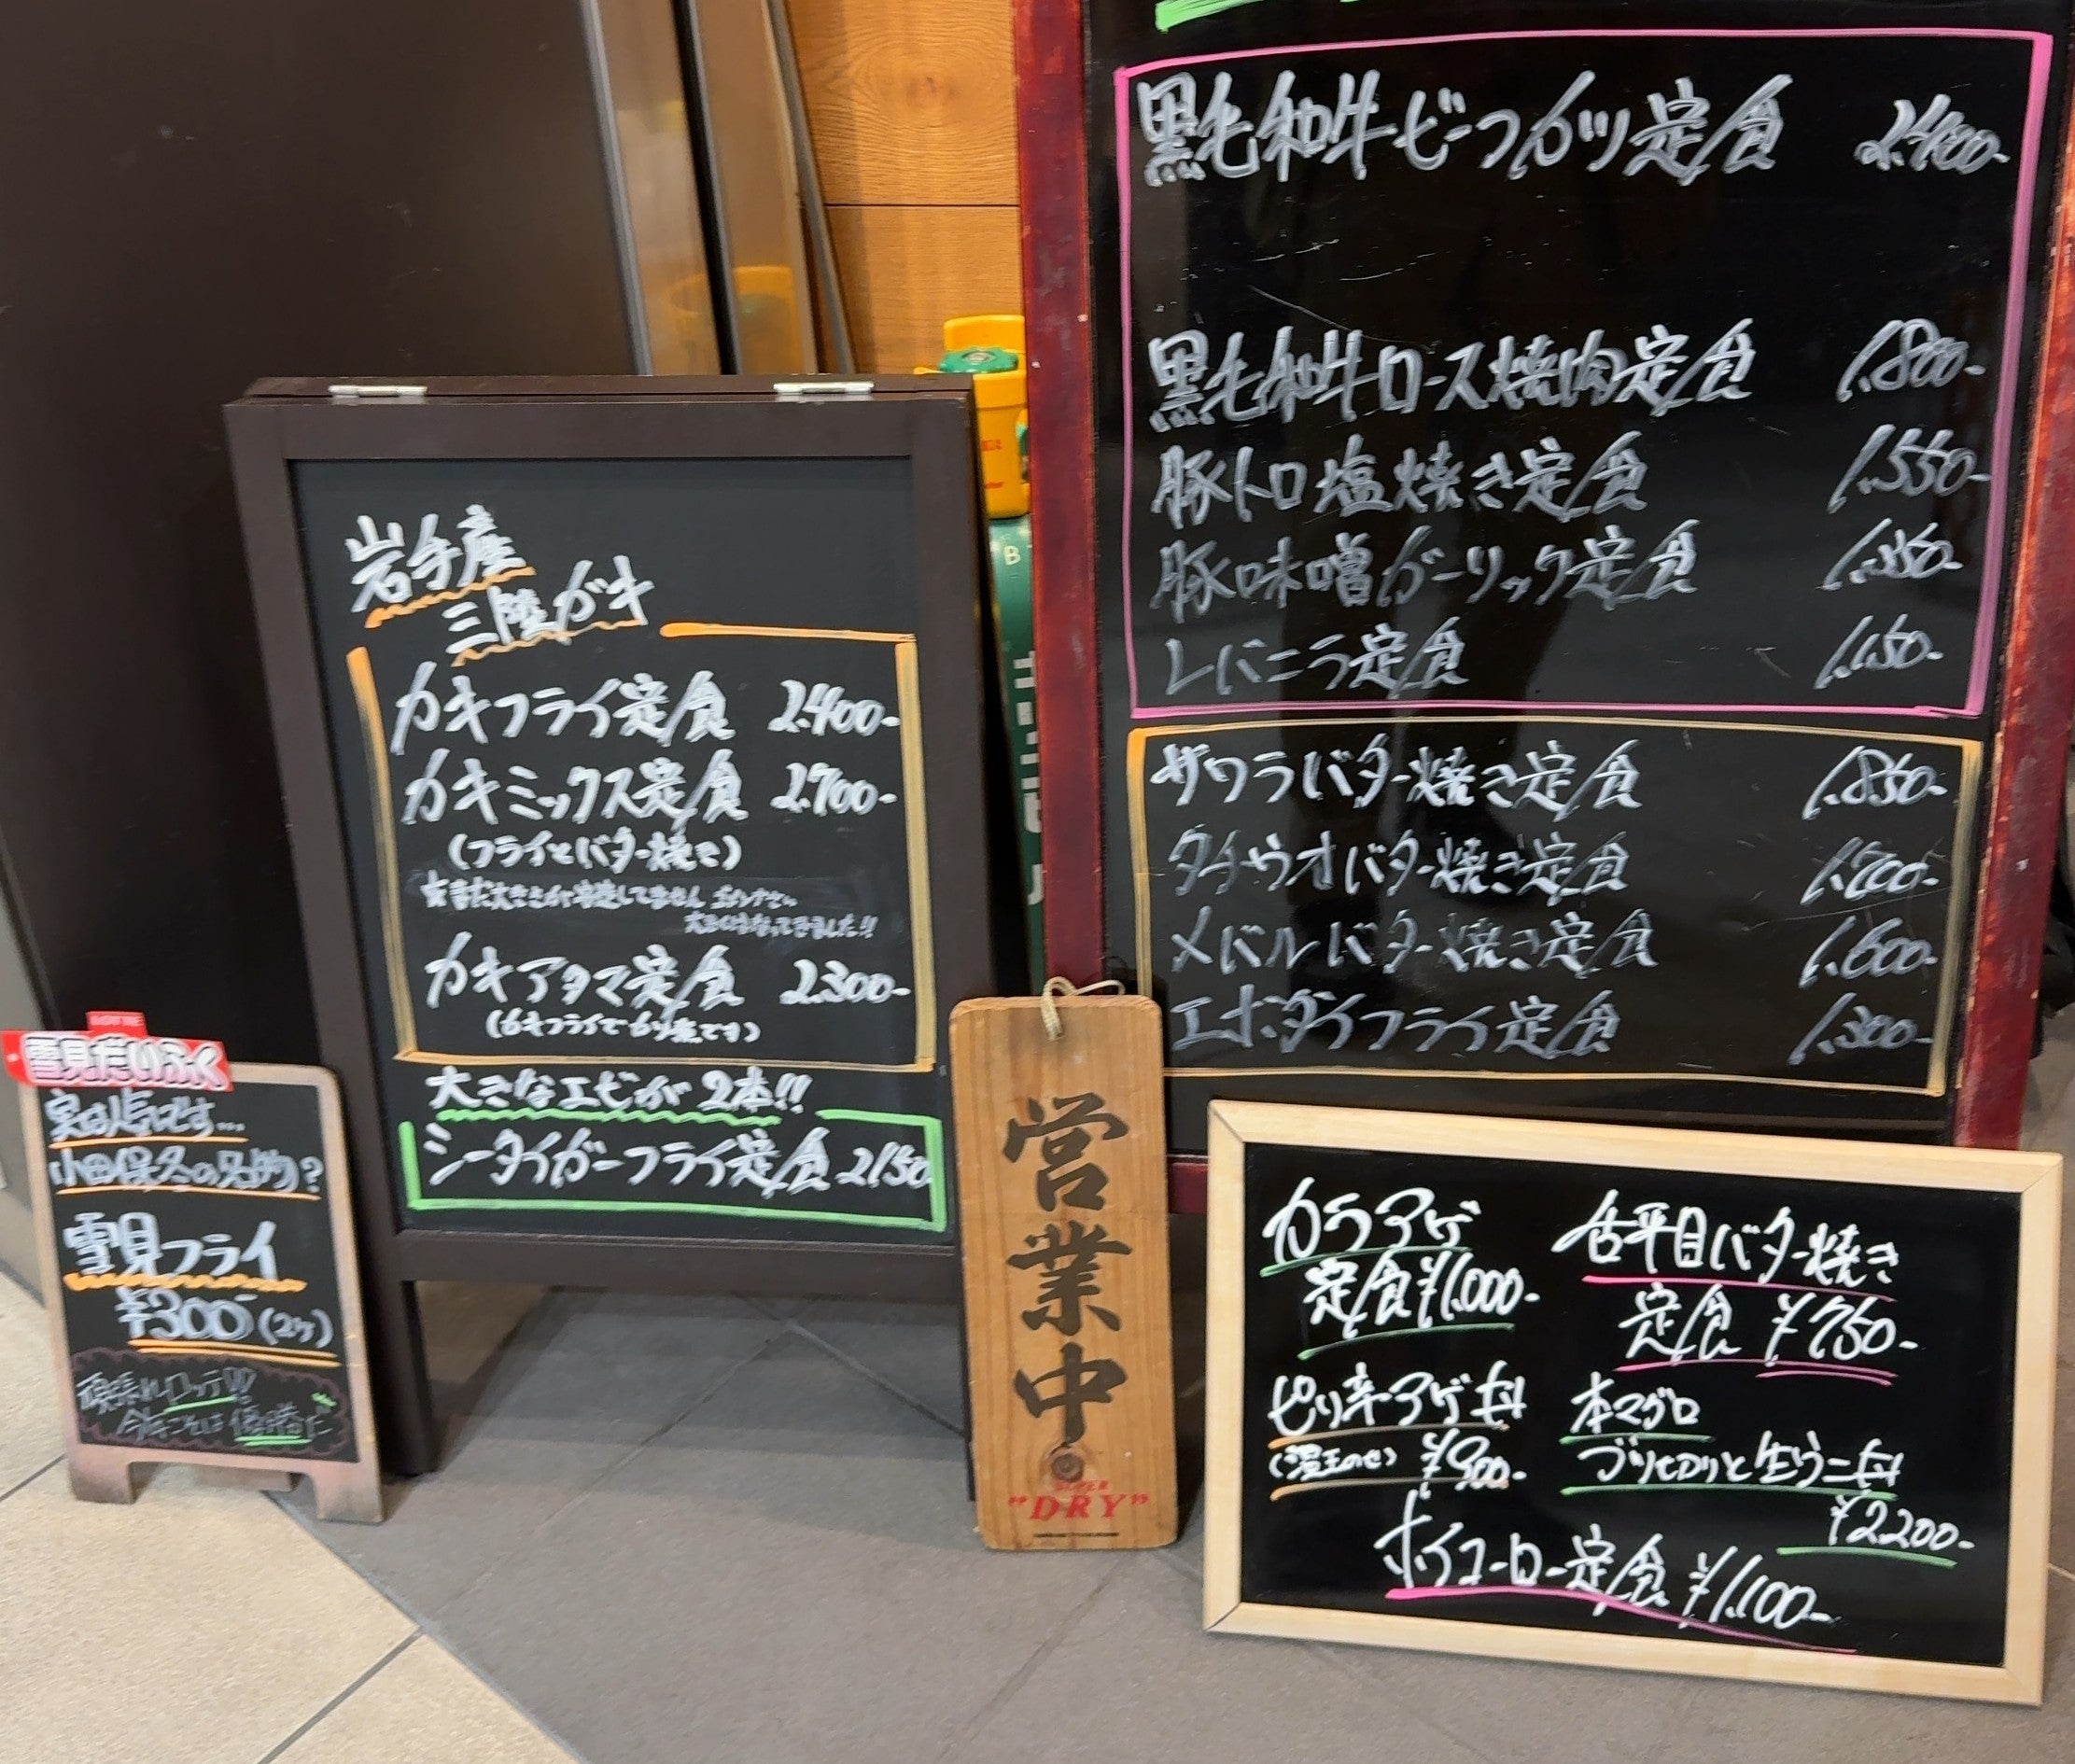 岩手産
三陸ガキ
カキフライ定食 2.400-
カキミックス定食 2.700-
(フライとバター焼き)
大きくはなってきました!!
カキアタマ定食 2.300-
(カキフライでカツ煮です)
大きなエビが2本!!
シータイガーフライ定食 2150
LOTTE
雪見だいふく
実は虎口です…
小田保冬の名物?
雪見フライ
¥300-(2ケ)
頑張れロッテ!!
今年こそは優勝だ
営業中
SUPER
"DRY"
黒毛和牛ビーフカツ定食 2.400-
黒毛和牛ロース焼肉定食 1.800-
豚トロ塩焼き定食 1.550-
豚味噌ガーリック定食
レバニラ定食 1.150-
サワラバター焼き定食 1.850-
タチウオバター焼き定食 1.700-
メバルバター焼き定食 1.600-
エボダイフライ定食 1.300-
カラアゲ
定食 ¥1.000-
ピリ辛アゲ丼
(温玉のせ) ¥900-
舌平目バター焼き
定食 ¥1750-
本マグロ
ブツ切りと生うに丼
¥2.200-
ホイコーロー定食 ¥1.100-